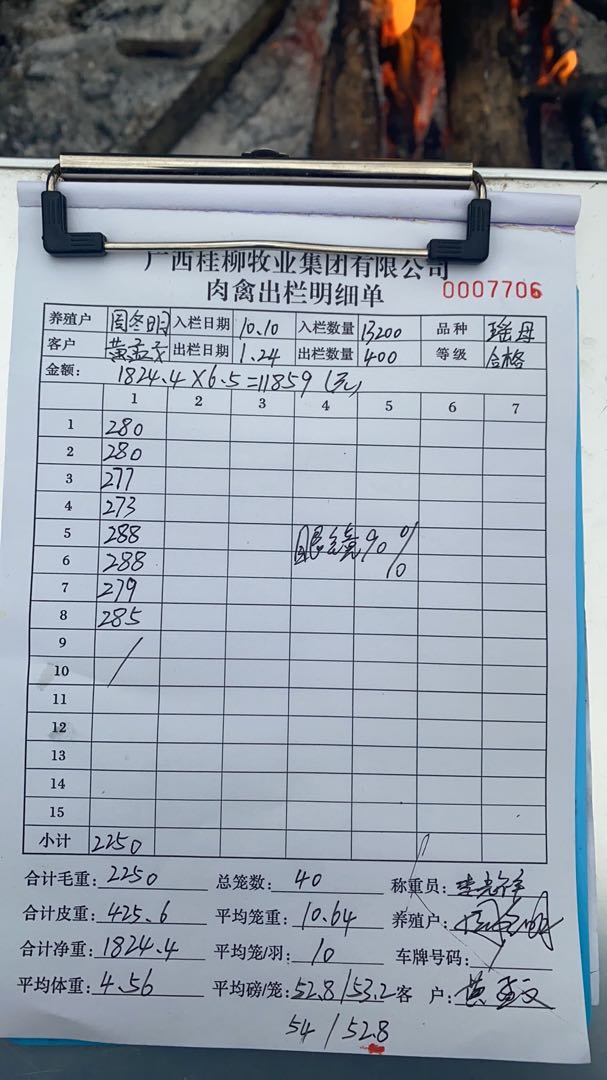 广西桂柳牧业集团有限公司
肉禽出栏明细单 0007706
养殖户 周冬明 入栏日期 10.10 入栏数量 13200 品种 瑶母
客户 黄孟文 出栏日期 1.24 出栏数量 400 等级 合格
金额: 1824.4×6.5=11859(元)
1 2 3 4 5 6 7
1 280
2 280
3 277
4 273
5 288 眼镜90%
6 288 10
7 279
8 285
9
10
11
12
13
14
15
小计 2250
合计毛重: 2250 总笼数: 40 称重员:
合计皮重: 425.6 平均笼重: 10.64 养殖户: 周冬明
合计净重: 1824.4 平均笼/羽: 10 车牌号码:
平均体重: 4.56 平均磅/笼: 52.8/53.2 客户: 黄孟文
54/52.8